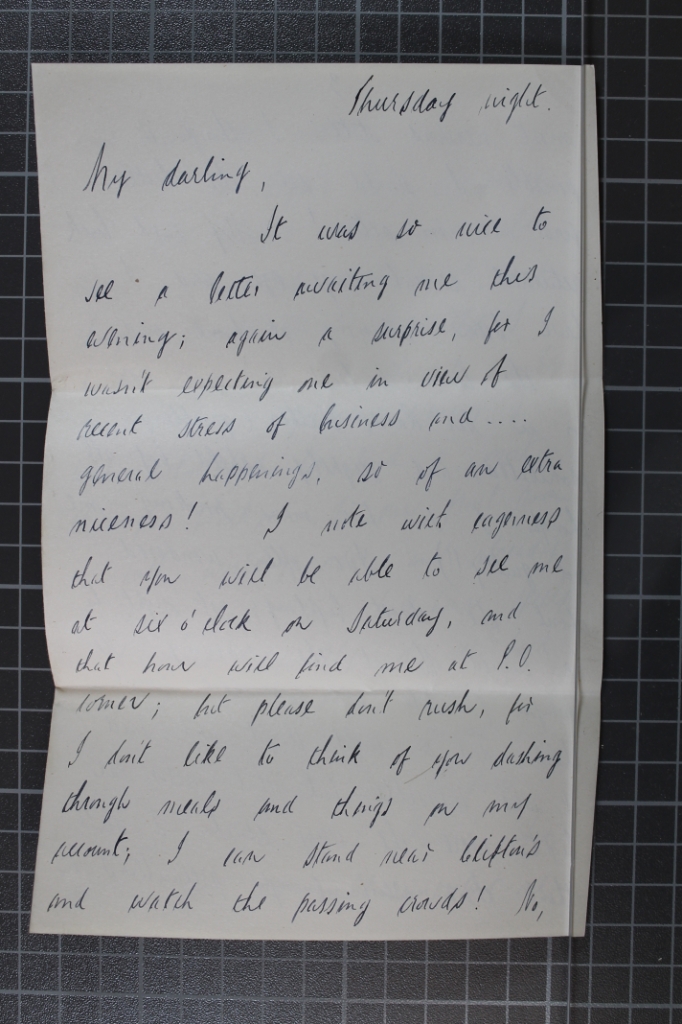 Thursday night.
My darling,
It was so nice to
see a letter awaiting me this
evening; again a surprise, for I
wasn't expecting one in view of
recent stress of business and ....
general happenings, so of an extra
niceness! I note with eagerness
that you will be able to see me
at six o'clock on Saturday, and
that hour will find me at P.O.
corner; but please don't rush, for
I don't like to think of you dashing
through meals and things on my
account; I can stand near Clifton's
and watch the passing crowds! No,